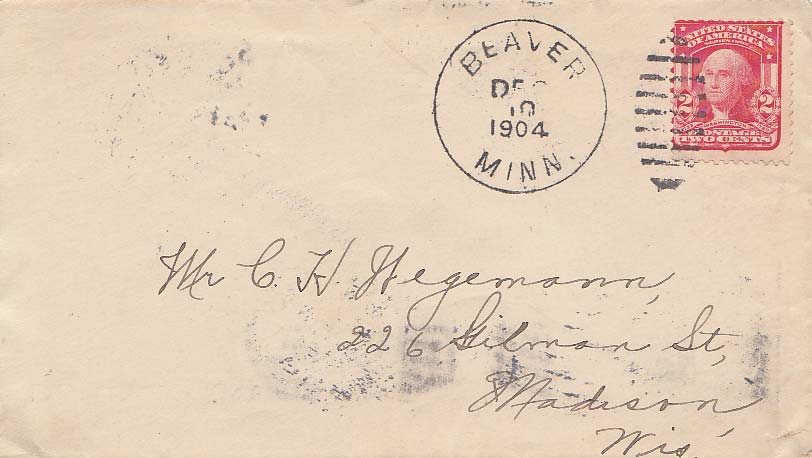 BEAVER
DEC
10
1904
MINN.
UNITED STATES
OF AMERICA
2 2
WASHINGTON
POSTAGE
TWO CENTS
Mr C. H Hegemann,
226 Gilman St,
Madison
Wis.